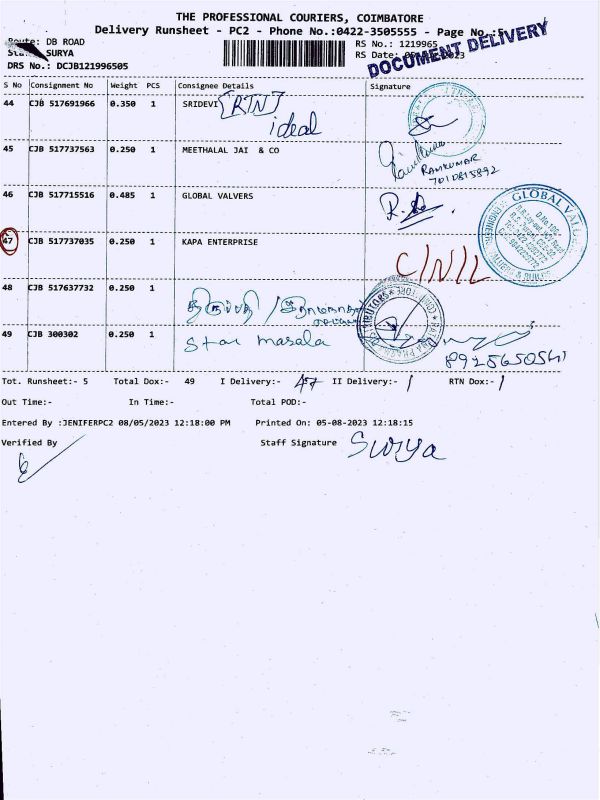 THE PROFESSIONAL COURIERS, COIMBATORE
Delivery Runsheet - PC2 - Phone No.:0422-3505555 - Page No.:5
Route: DB ROAD
RS No.: 1219965
SURYA
RS Date:
DOCUMENT DELIVERY
DRS No.: DCJB121996505
S No Consignment No Weight PCS Consignee Details Signature
44 CJB 517691966 0.350 1 SRIDEVI [RTN]
ideal
45 CJB 517737563 0.250 1 MEETHALAL JAI & CO
RAMKUMAR
7010815892
46 CJB 517715516 0.485 1 GLOBAL VALVERS
GLOBAL
47 CJB 517737035 0.250 1 KAPA ENTERPRISE
C/N/L
48 CJB 517637732 0.250 1
49 CJB 300302 0.250 1 Star masala
Tot. Runsheet:- 5 Total Dox:- 49 I Delivery:- 47 II Delivery:- 1 RTN Dox:- 1
Out Time:- In Time:- Total POD:-
Entered By :JENIFERPC2 08/05/2023 12:18:00 PM Printed On: 05-08-2023 12:18:15
Verified By Staff Signature Surya